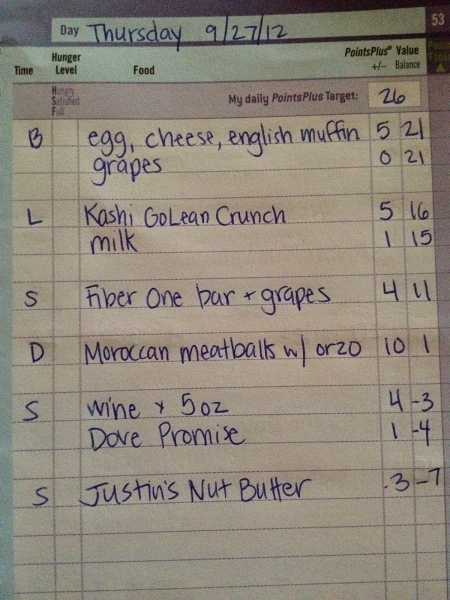 Day Thursday 9/27/12
53
Hunger PointsPlus® Value
Time Level Food +/- Balance
Hungry
Satisfied
Full
My daily PointsPlus Target: 26
B egg, cheese, english muffin 5 21
grapes 0 21
L Kashi GoLean Crunch 5 16
milk 1 15
S Fiber One bar + grapes 4 11
D Moroccan meatballs w/ orzo 10 1
S wine 5 oz 4 -3
Dove Promise 1 -4
S Justin's Nut Butter 3 -7